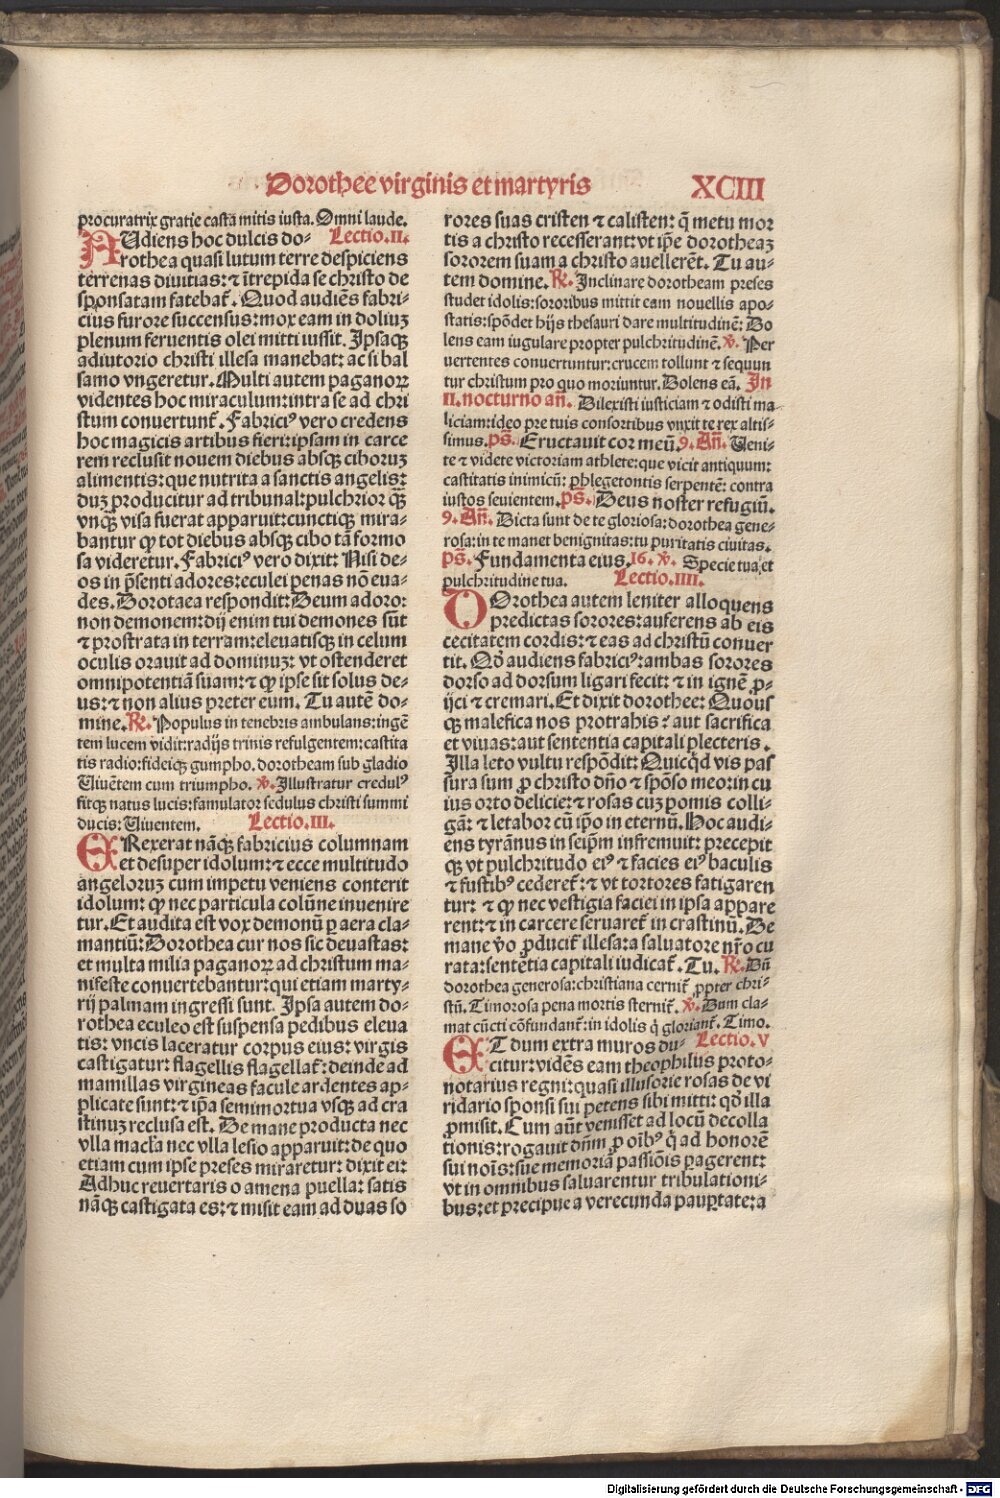 Dorothee virginis et martyris XCIII
procuratrix gratie casta mitis iusta. Omni laude.
AUdiens hoc dulcis do- Lectio.II.
rothea quasi lutum terre despiciens
terrenas diuitias: ⁊ ītrepida se christo de
sponsatam fatebat̄. Quod audiēs fabri-
cius furore succensus: mox eam in doliuꝫ
plenum feruentis olei mitti iussit. Ipsaqꝫ
adiutorio christi illesa manebat: ac si bal
samo vngeretur. Multi autem paganoꝝ
videntes hoc miraculum: intra se ad chri
stum conuertunt̄. Fabriciꝰ vero credens
hoc magicis artibus fieri: ipsam in carce
rem reclusit nouem diebus absqꝫ ciboruꝫ
alimentis: que nutrita a sanctis angelis:
duꝫ producitur ad tribunal: pulchrior qꝫ̄
vnqꝫ̄ visa fuerat apparuit: cunctiqꝫ mira-
bantur ꝙ tot diebus absqꝫ cibo tā formo
sa videretur. Fabriciꝰ vero dixit: Nisi de-
os in p̄senti adores: eculei penas nō eua-
des. Dorotaea respondit: Deum adoro:
non demonem: dij enim tui demones sūt
⁊ prostrata in terram: eleuatisqꝫ in celum
oculis orauit ad dominuꝫ: vt ostenderet
omnipotentiā suam: ⁊ ꝙ ipse sit solus de-
us: ⁊ non alius preter eum. Tu autē do-
mine. ℞. Populus in tenebris ambulans: ingē
tem lucem vidit: radijs trinis refulgentem: castita
tis radio: fideiqꝫ gumpho. dorotheam sub gladio
Uiuētem cum triumpho. ℣. Illustratur credulꝰ
fitqꝫ natus lucis: famulator sedulus christi summi
ducis: Uiuentem. Lectio.III.
ERexerat nāqꝫ fabricius columnam
et desuper idolum: ⁊ ecce multitudo
angeloruꝫ cum impetu veniens conterit
idolum: ꝙ nec particula colūne inuenire
tur. Et audita est vox demonū ꝑ aera cla-
mantiū: Dorothea cur nos sic deuastas:
et multa milia paganoꝝ ad christum ma-
nifeste conuertebantur: qui etiam marty-
rij palmam ingressi sunt. Ipsa autem do-
rothea eculeo est suspensa pedibus eleua
tis: vncis laceratur corpus eius: virgis
castigatur: flagellis flagellat̄: deinde ad
mamillas virgineas facule ardentes ap-
plicate sunt: ⁊ ip̄a semimortua vsqꝫ ad cra
stinuꝫ reclusa est. De mane producta nec
vlla macl̄a nec vlla lesio apparuit: de quo
etiam cum ipse preses miraretur: dixit ei:
Adhuc reuertaris o amena puella: satis
nāqꝫ castigata es: ⁊ misit eam ad duas so
rores suas cristen ⁊ calisten: q̄ metu mor
tis a christo recesserant: vt ip̄e dorotheaꝫ
sororem suam a christo auellerēt. Tu au-
tem domine. ℞. Inclinare dorotheam preses
studet idolis: sororibus mittit eam nouellis apo-
statis: spōdet hijs thesauri dare multitudinē: Do
lens eam iugulare propter pulchritudinē. ℣. Per
uertentes conuertuntur: crucem tollunt ⁊ sequun
tur christum pro quo moriuntur. Dolens eā. In
II. nocturno añ. Dilexisti iusticiam ⁊ odisti ma
liciam: ideo pre tuis consortibus vnxit te rex altis-
simus. pš. Eructauit cor meū. 9. Añ. Ueni-
te ⁊ videte victoriam athlete: que vicit antiquum:
castitatis inimicū: phlegetontis serpentē: contra
iustos seuientem. pš. Deus noster refugiū.
9. Añ. Dicta sunt de te gloriosa: dorothea gene-
rosa: in te manet benignitas: tu puritatis ciuitas.
pš. Fundamenta eius. 16. ℣. Specie tua et
pulchritudine tua. Lectio.IIII.
DOrothea autem leniter alloquens
predictas sorores: auferens ab eis
cecitatem cordis: ⁊ eas ad christū conuer
tit. Qd̄ audiens fabriciꝰ: ambas sorores
dorso ad dorsum ligari fecit: ⁊ in ignē ꝓ-
ijci ⁊ cremari. Et dixit dorothee: Quousꝫ
qꝫ malefica nos protrahis? aut sacrifica
et viuas: aut sententia capitali plecteris.
Illa leto vultu respōdit: Quicqd̄ vis pas
sura sum ꝓ christo dño ⁊ spōso meo: in cu
ius orto delicie: ⁊ rosas cuꝫ pomis colli-
gā: ⁊ letabor cū ip̄o in eternū. Hoc audi-
ens tyrānus in seip̄m infremuit: precepit
qꝫ vt pulchritudo eiꝰ ⁊ facies eiꝰ baculis
⁊ fustibꝰ cederet̄: ⁊ vt tortores fatigaren
tur: ⁊ ꝙ nec vestigia faciei in ipsa appare
rent: ⁊ in carcere seruaret̄ in crastinū. De
mane v̄o ꝓducit̄ illesa: a saluatore nr̄o cu
rata: sentētia capitali iudicat̄. Tu. ℞. Dū
dorothea generosa: christiana cernit̄ ꝓpter chri-
stū. Timorosa pena mortis sternit̄. ℣. Dum cla-
mat cūcti cōfundant̄: in idolis q̄ gloriant̄. Timo.
ET dum extra muros du- Lectio.V
citur: vidēs eam theophilus proto-
notarius regni: quasi illusorie rosas de vi
ridario sponsi sui petens sibi mitti: qd̄ illa
ꝓmisit. Cum aūt venisset ad locū decolla
tionis: rogauit dn̄m ꝓ oībꝰ q̄ ad honorē
sui noīs: sue memoriā passiōis ꝑagerent:
vt in omnibus saluarentur tribulationi-
bus: et precipue a verecunda pauꝑtate: a
Digitalisierung gefördert durch die Deutsche Forschungsgemeinschaft - DFG